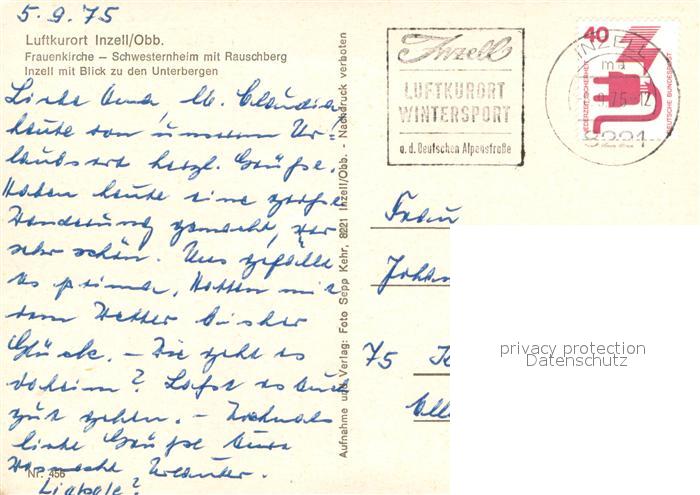 5.9.75
Luftkurort Inzell/Obb.
Frauenkirche – Schwesternheim mit Rauschberg
Inzell mit Blick zu den Unterbergen
Liebe Oma, lb. Claudia,
heute von unserem Ur-
laubsort herzl. Grüße.
Haben heute eine große
Wanderung gemacht, war
sehr schön. Uns gefällt
es prima. Hatten mit
dem Wetter bisher
Glück. – Wie geht es
daheim? Laßt es Euch
gut gehen. – Nochmals
liebe Grüße Eure
Urlauber.
Nr. 456
Aufnahme und Verlag: Foto Sepp Kehr, 8221 Inzell/Obb. - Nachdruck verboten
Inzell
LUFTKURORT
WINTERSPORT
a.d. Deutschen Alpenstraße
40
JEDERZEIT SICHERHEIT
DEUTSCHE BUNDESPOST
INZELL
ma
9.75-12
8221
Frau
Johan
75
privacy protection
Datenschutz